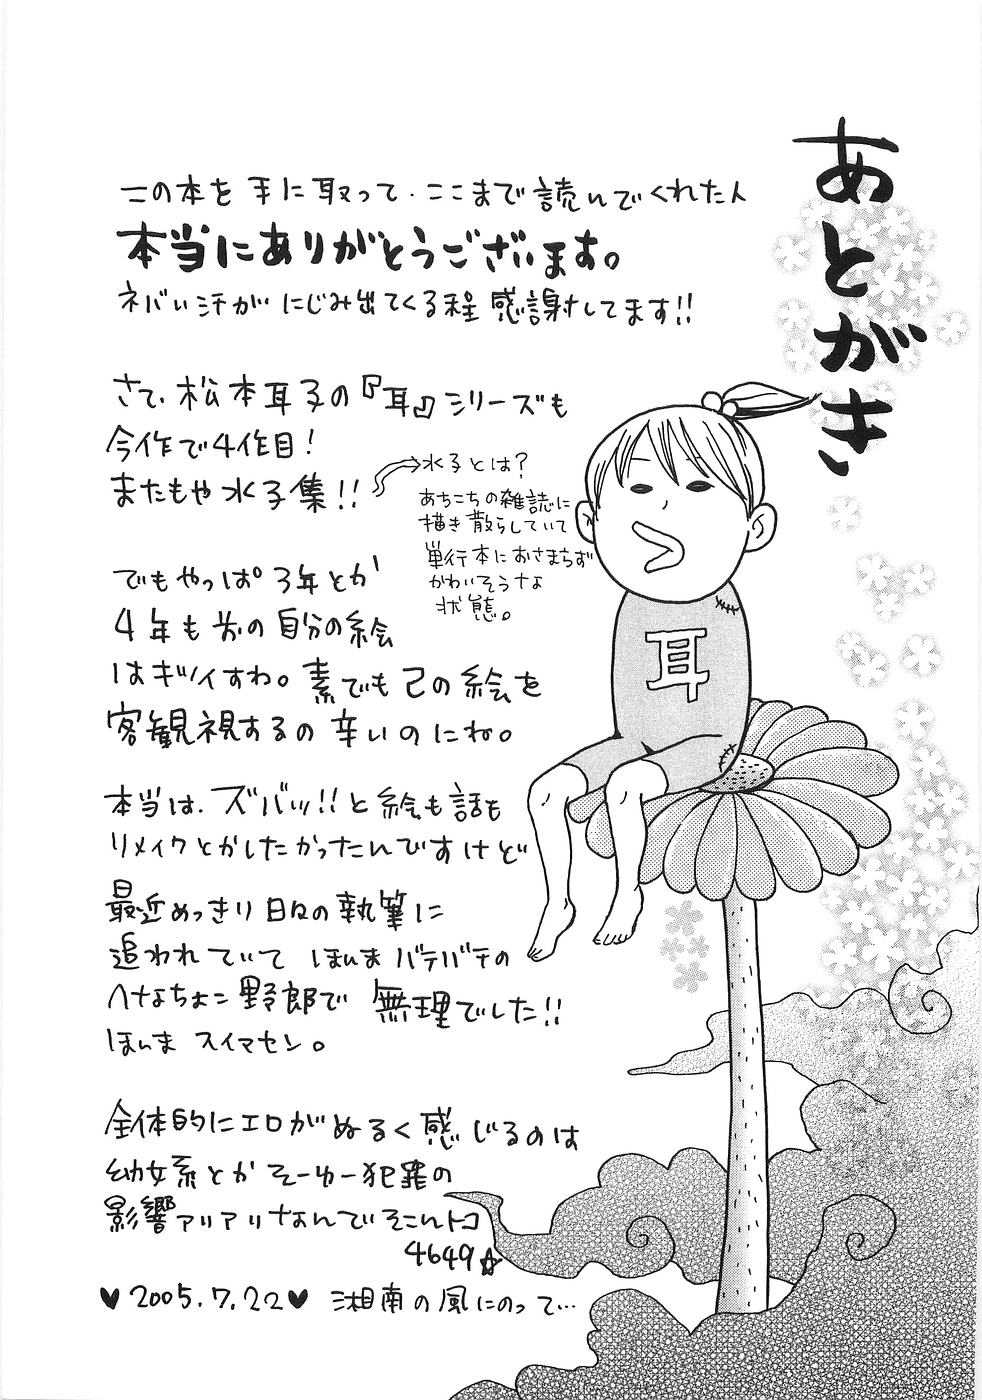 あとがき
この本を手に取って、ここまで読んでくれた人
本当にありがとうございます。
ネバい汗がにじみ出てくる程感謝してます!!
さて、松本耳子の『耳』シリーズも
今作で4作目!
またもや水子集!!
→水子とは?
あちこちの雑誌に
描き散らしていて
単行本におさまらず
かわいそうな
状態。
でもやっぱ3年とか
4年も前の自分の絵
はキツイすわ。素でも己の絵を
客観視するの辛いのにね。
本当は、ズバッ!!と絵も話も
リメイクとかしたかったんですけど
最近めっきり日々の執筆に
追われていて ほんまバテバテの
ヘナちょこ野郎で 無理でした!!
ほんま スイマセン。
全体的にエロがぬるく感じるのは
幼女系とか そーゆー犯罪の
影響アリアリなんでそこんトコ
4649☆
♥2005.7.22♥ 湘南の風にのって…
耳